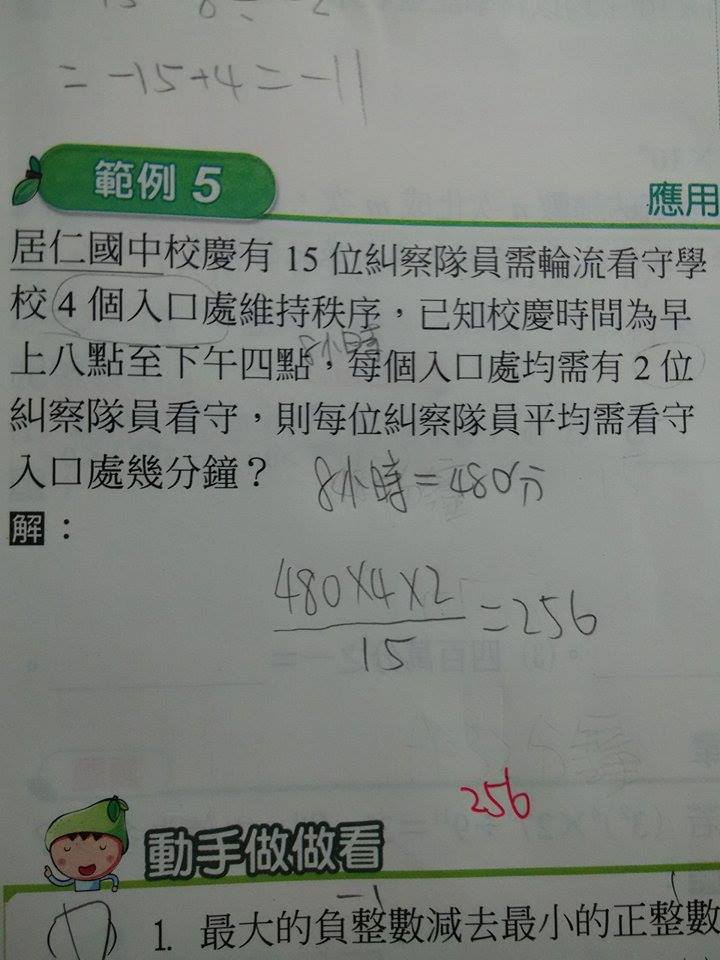 = -15+4 = -11
範例 5
應用
居仁國中校慶有 15 位糾察隊員需輪流看守學
校 4 個入口處維持秩序，已知校慶時間為早
8小時
上八點至下午四點，每個入口處均需有 2 位
糾察隊員看守，則每位糾察隊員平均需看守
入口處幾分鐘？
8小時=480分
解：
480×4×2
15
=256
256
動手做做看
-1
1
1. 最大的負整數減去最小的正整數